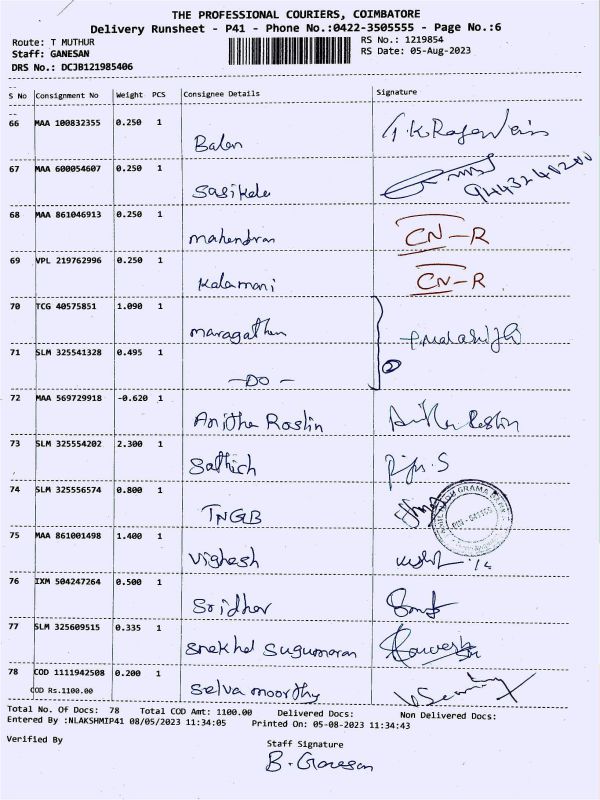 THE PROFESSIONAL COURIERS, COIMBATORE
Delivery Runsheet - P41 - Phone No.:0422-3505555 - Page No.:6
Route: T MUTHUR
RS No.: 1219854
Staff: GANESAN
RS Date: 05-Aug-2023
DRS No.: DCJB121985406
S No Consignment No Weight PCS Consignee Details Signature
66 MAA 100832355 0.250 1
Balan
67 MAA 600054607 0.250 1
Sasikala
68 MAA 861046913 0.250 1
mahendran CN-R
69 VPL 219762996 0.250 1
Kalamani CN-R
70 TCG 40575851 1.090 1
maragatham
71 SLM 325541328 0.495 1
-DO- 2
72 MAA 569729918 -0.620 1
Anitha Roslin
73 SLM 325554202 2.300 1
Sathish
74 SLM 325556574 0.800 1
TNGB
75 MAA 861001498 1.400 1
Vighesh
76 IXM 504247264 0.500 1
Sridhar
77 SLM 325609515 0.335 1
Snekhel Sugumaran
78 COD 1111942508 0.200 1
COD Rs.1100.00 Selva moorthy
Total No. Of Docs: 78 Total COD Amt: 1100.00 Delivered Docs: Non Delivered Docs:
Entered By :NLAKSHMIP41 08/05/2023 11:34:05 Printed On: 05-08-2023 11:34:43
Verified By
Staff Signature
B. Ganesan